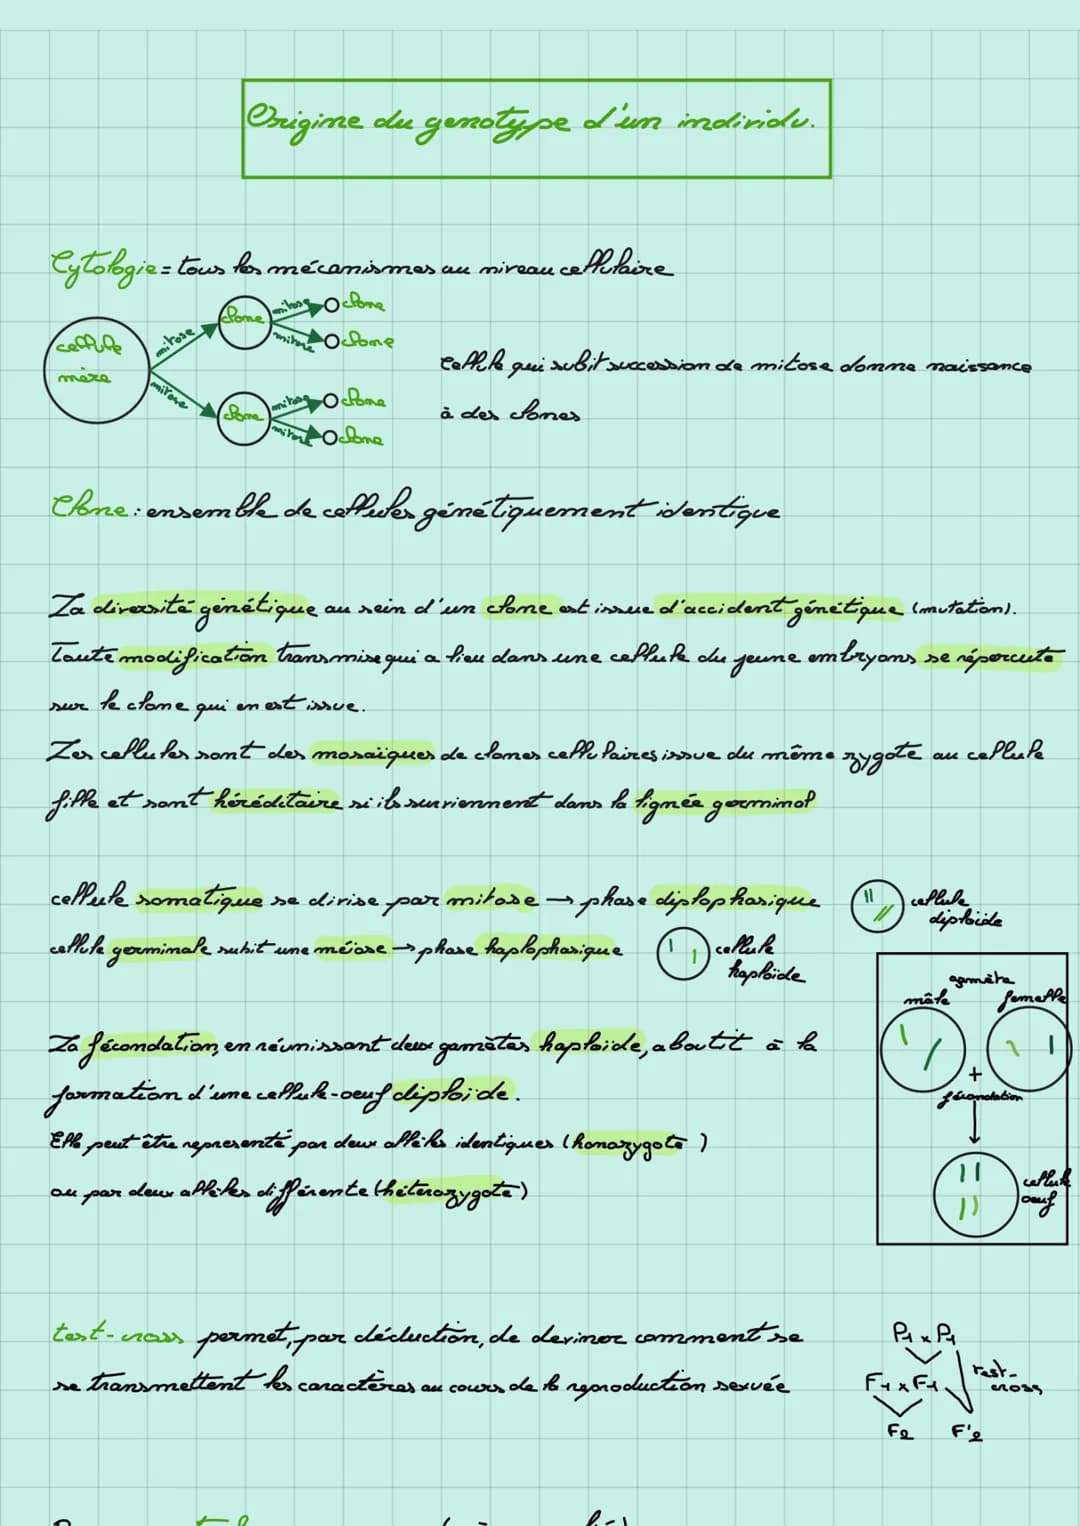 Origine du genotype d'un individu.
Cytologie = tous les mécanismes au niveau cellulaire
cellule
mère
mitose
mitose
clone
clone
mitose
mitose
mitose
mitose
clone
clone
clone
clone
Cellule qui subit succession de mitose donne naissance
à des clones
Clone : ensemble de cellules génétiquement identique
La diversité génétique au sein d'un clone est issue d'accident génétique (mutation).
Toute modification transmise qui a lieu dans une cellule du jeune embryons se répercute
sur le clone qui en est issue.
Les cellules sont des mosaïques de clones cellulaires issue du même zygote au cellule
fille et sont héréditaire si ils surviennent dans la lignée germinal
cellule somatique se divise par mitose → phase diplophasique
cellule
diploïde
cellule germinale subit une méiose → phase haplophasique
cellule
haploïde
La fécondation, en réunissant deux gamètes haploïde, aboutit à la
formation d'une cellule-oeuf diploïde.
Elle peut être representé par deux allèles identiques (homozygote)
ou par deux allèles différente (hétérozygote)
gamète
mâle
femelle
+
fécondation
cellule
oeuf
test-cross permet, par déduction, de deviner comment se
se transmettent les caractères au cours de la reproduction sexuée
P1 x P1
F1 x F1
test-
cross
F2
F'2